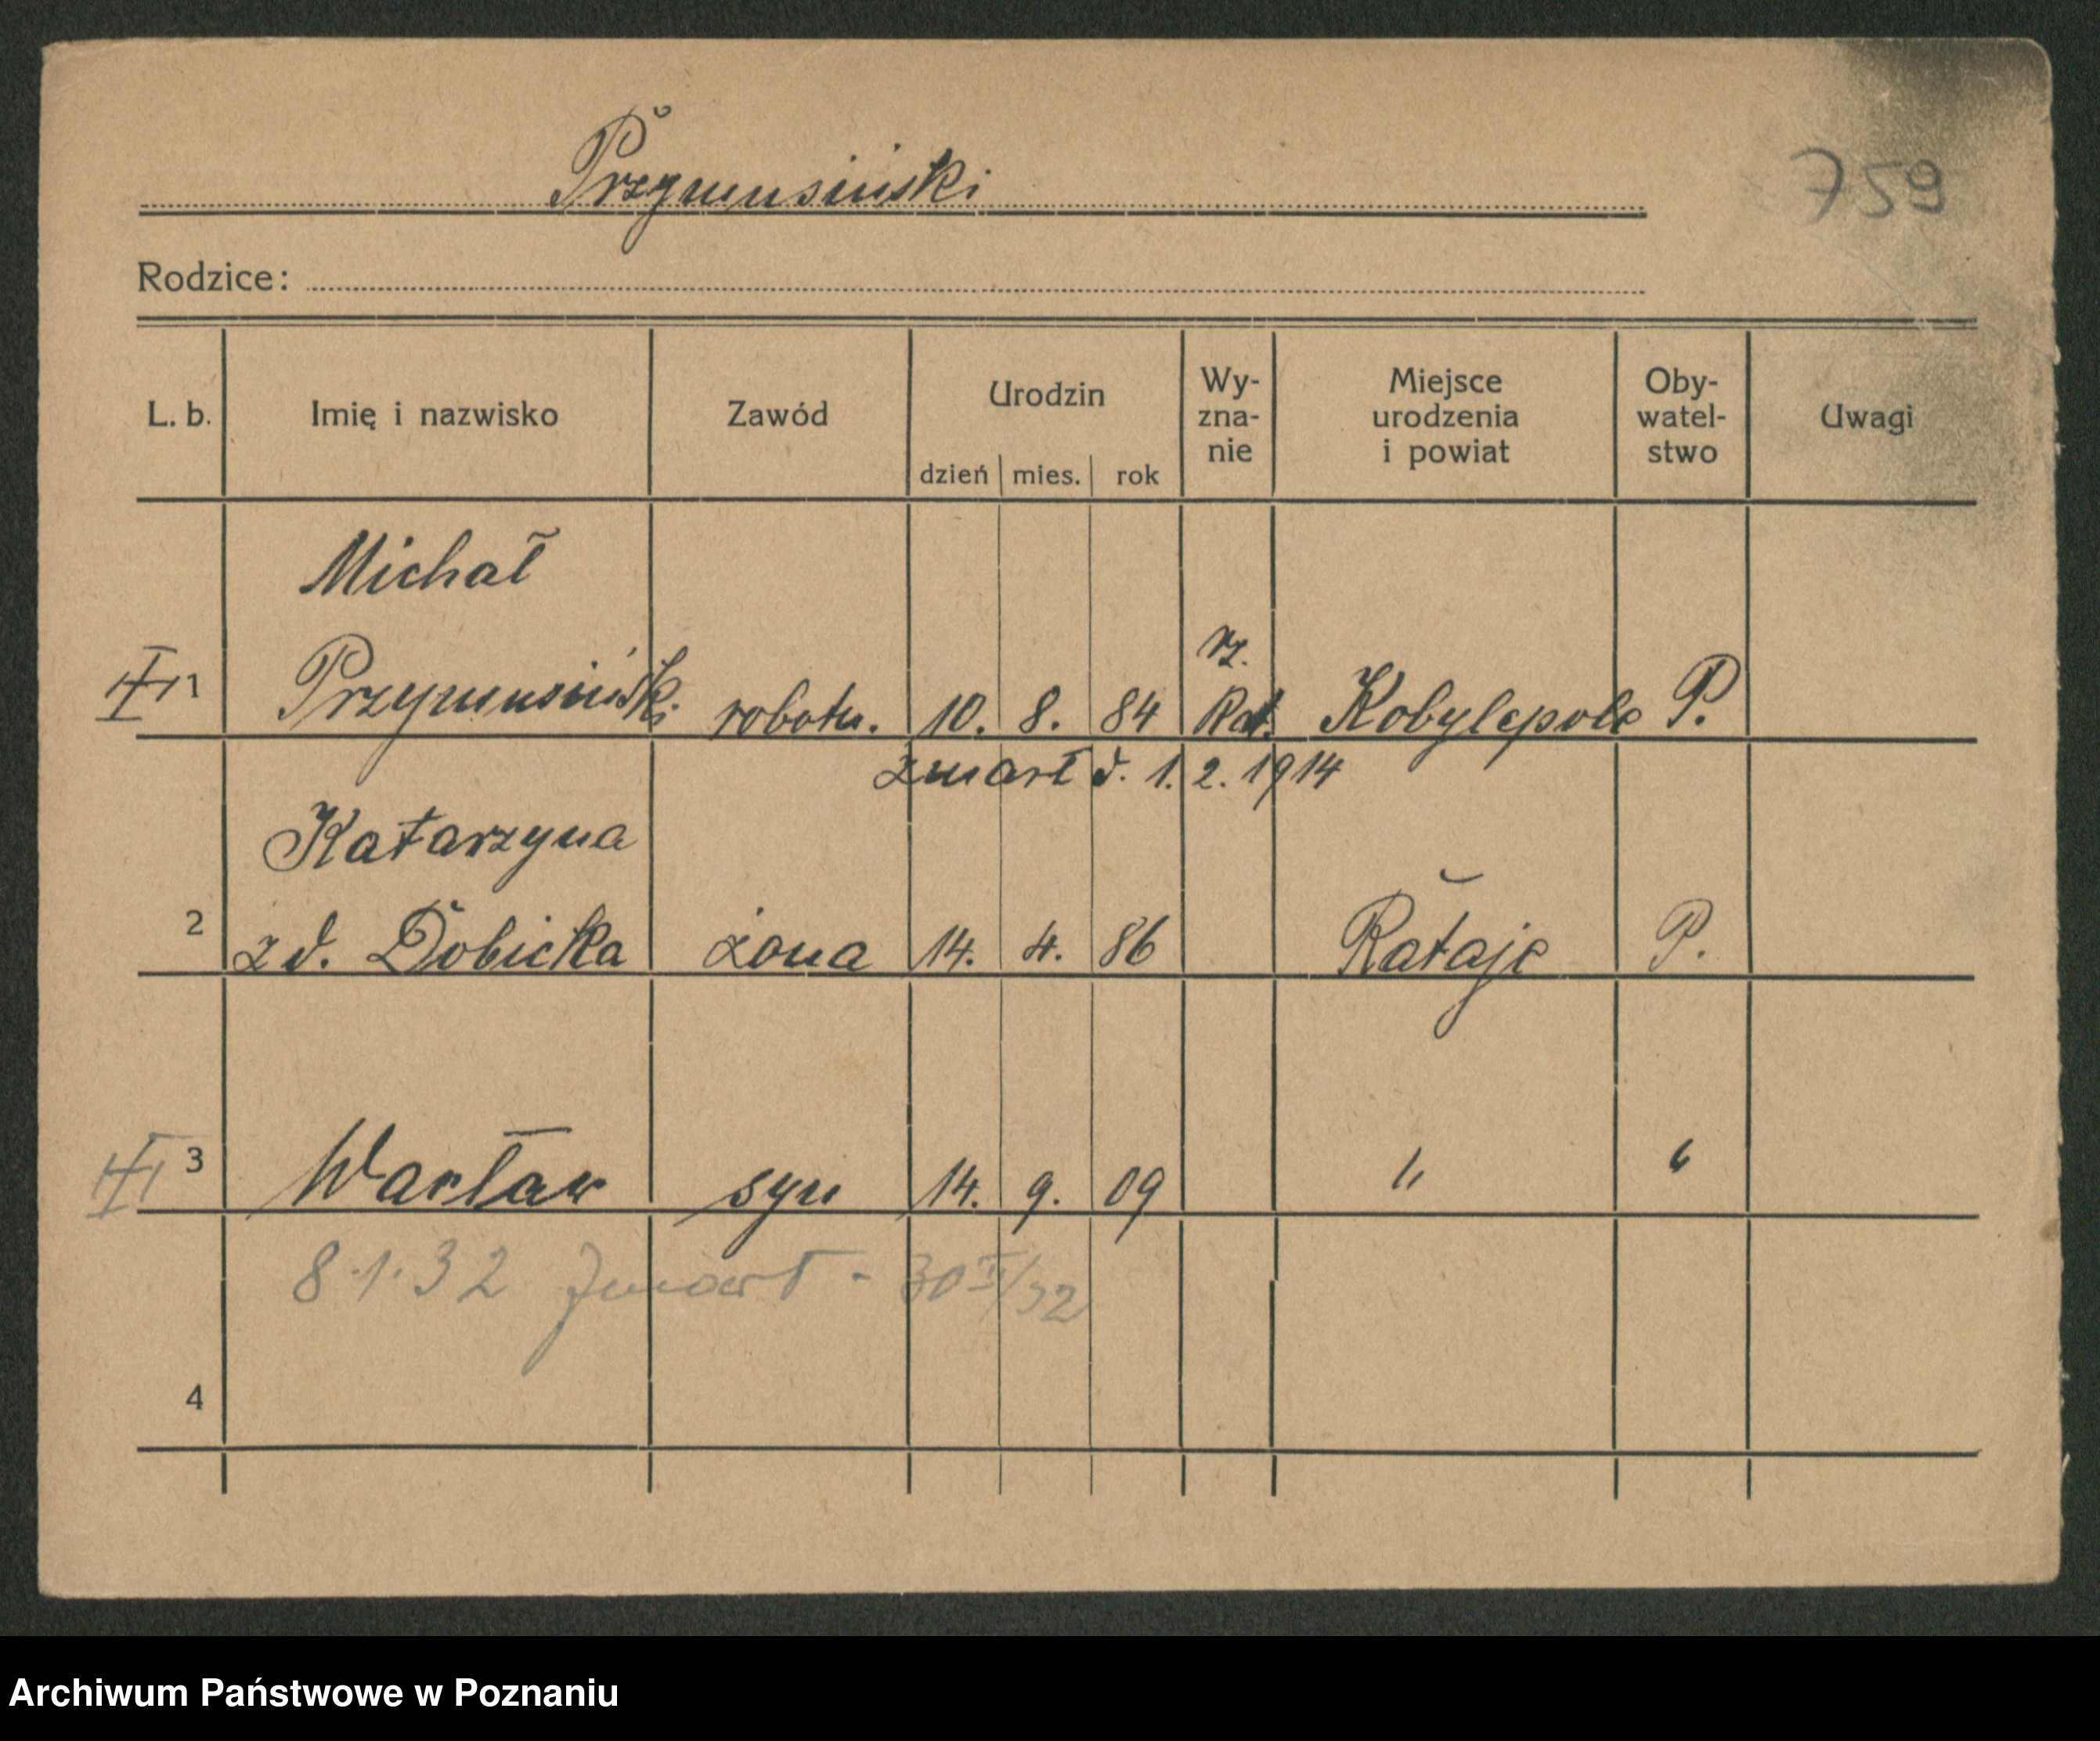 Przymusiński
759
Rodzice:
L. b. Imię i nazwisko Zawód Urodzin dzień mies. rok Wy-zna-nie Miejsce urodzenia i powiat Oby-watel-stwo Uwagi
Michał
1 Przymusiński robotn. 10. 8. 84 rz. Kat. Kobylepole P.
zmarł d. 1. 2. 1914
Katarzyna
2 z d. Dobicka żona 14. 4. 86 Rataje P.
3 Wacław syn 14. 9. 09 " "
8.1.32 Zmarł - 30 /32
4
Archiwum Państwowe w Poznaniu